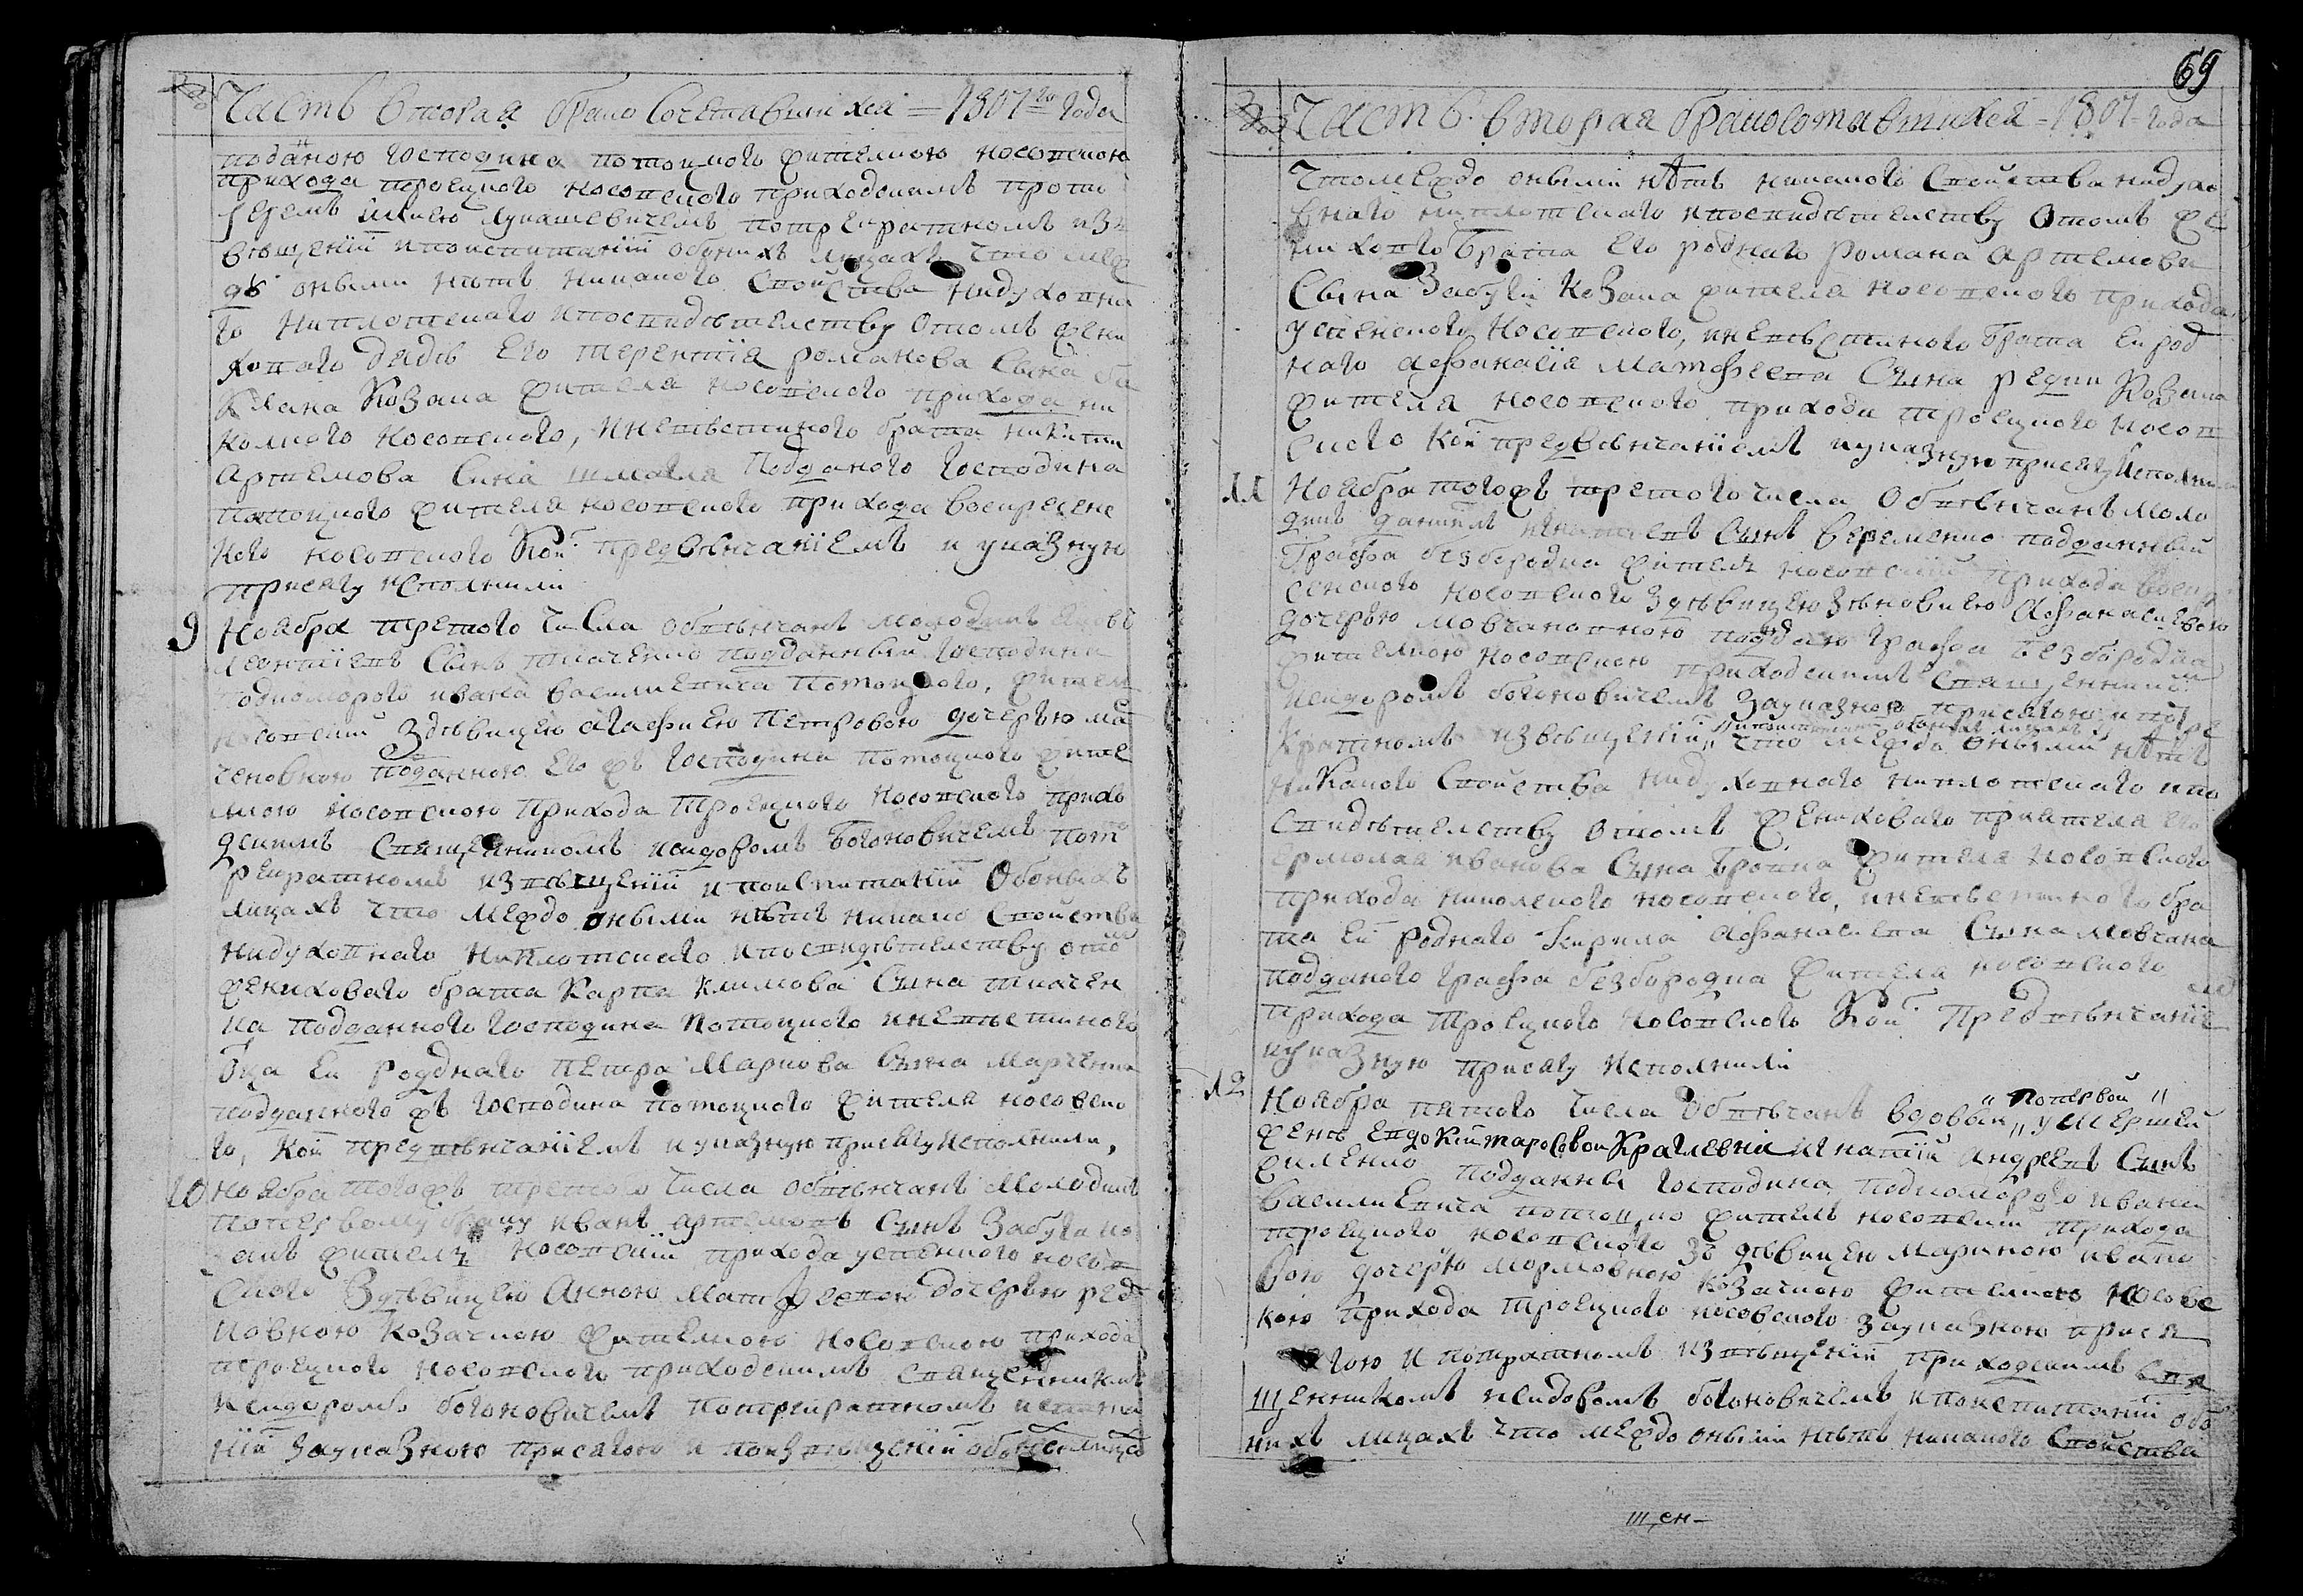 Часть вторая брако сочетавшихся = 1807го года
поданою господина потоцкого жителкою носовскою
прихода троецкого носовского приходскимъ прото
іереемъ Илиею лукашевичемъ потрекратномъ изъ
вѣщеніи и поиспитаніи обонихъ лицахъ что меж
дъ оными нѣтъ никакого свойства нидуховна
го ниплотского и посвидѣтелству отомъ жени
хового дядѣ его терентія романова сына ба
клана козака жителя носовского прихода ни
колского носовского, иневѣстиного брата никити
артемова сина шмаля подданого господина
потоцкого жителя носовского прихода воскресенс
кого носовского кои предвѣнчаніемъ и указную
присягу исполнили
9 Ноября третого числа обвѣнчанъ молодикъ яковъ
леонтіевъ сынъ ткаченко подданный господина
подкоморого ивана василиевича потоцкого, жителъ
носовскій здѣвицею агафиею петровою дочерѣю мар
ченковною поданною его жъ господина потоцкого жите
лкою носовскою прихода троецкого носовского прихо
дскимъ священникомъ исидоромъ богоновичемъ пот
рекратномъ извѣщеніи и поиспитаніи обоныхъ
лицахъ что между оными нѣтъ никако свойства
нидуховного ниплотского и посвидѣтелству отом
жениховаго брата карпа климова сына ткачен
ка подданного господина потоцкого иневѣстиного
отца еи родднаго петра маркова сына марченка
подданного жъ господина потоцкого жителя носовско
го, кои предвѣнчаніемъ иуказную присягу исполнили,
10 ноября тогожъ третого числа обвѣнчанъ молодикъ
попервому браку иванъ артемовъ сынъ забуга ко
закъ жителъ носовскій прихода успенского носов
ского здѣвицею анною матфеевою дочерѣю ред
ковною козачкою жителкою носовскою прихода
троецкого носовского приходскимъ священникомъ
исидоромъ богоновичемъ потрекратномъ испита
ніи зауказною присягою и поизвѣщеніи обоихъ лицахъ
69
Часть вторая бракосотавшихся - 1807 - года
что между оными нѣтъ никакого свойства нидухо
вного ниплотскаго и посвидѣтелству отомъ же
ниховго брата его роднаго романа артемова
сына забуги козака жителя носовского прихода
успенского носовского, иневѣстиного брата еи род
ного афанасія матофеева сына редки козака
жителя носовского прихода троецкого носов
ского кои предвѣнчаніемъ иуказную присягу исполнили
11 Ноября тогожъ третого числа обвѣнчанъ моло
дикъ даниилъ игнатиевъ сынъ веремѣнко подданный
графа безбородка жителъ носовскій прихода воскр
сенского носовского здѣвицею зѣновиею афанасиевою
дочерѣю мовчановною подданою графа безбородка
жителкою носовскою приходскимъ священникомъ
исидоромъ богоновичемъ зауказною присягою ипотре
кратномъ извѣщеніи „ипоиспитаніи обонихъ лицахъ„ что между оными нѣтъ
никакого свойства нидуховнаго ниплотскаго ипо
свидѣтелству отомъ жениховаго приятеля его
ермолая иванова сына бровка жителя носовского
прихода николского носовского, иневѣстиного бра
та еи родного кирила афанасиева сына мовчана
подданого графа безбородка жителя носовского
прихода троецкого носовского кои предвѣнчаніемъ
иуказную присягу исполнили
12 Ноября пятого числа обвѣнчанъ вдовый „попервой„ умершей
женѣ евдокіи тарасовой кравлевни игнатій андреевъ сынъ
филенко подданны господина подкоморого ивана
василиевича потоцкого жителъ носовскій прихода
троецкого носовского зо дѣвицею мариною ивано
вою дочерю мормовною козачкою жителкою носовс
кою прихода троецкого носовского зауказною прися
гою и потратномъ извѣщеніи приходскимъ свя
щенникомъ исидоромъ богоновичемъ и поиспитаніи обо
нихъ лицахъ что между оными нѣтъ никакого свойства
щен-